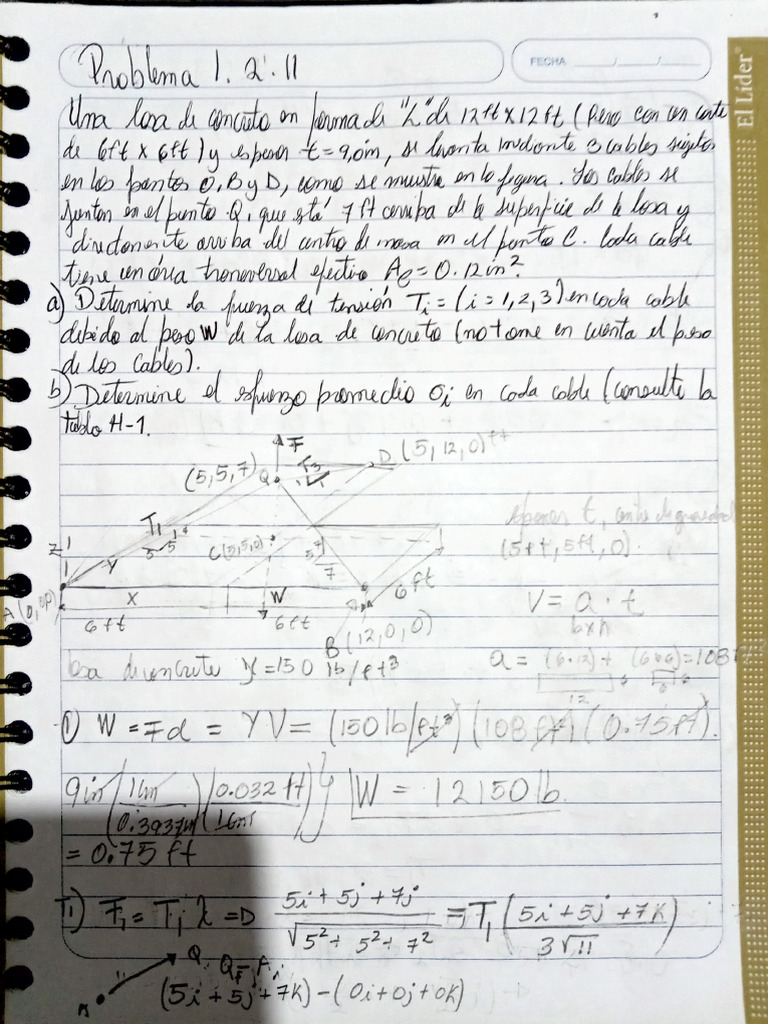 Problema 1.2.11
FECHA
El Líder
Una losa de concreto en forma de "L" de 12ft x 12ft (Pero con un corte
de 6ft x 6ft) y espesor t = 9,0in, se levanta mediante 3 cables sujetos
en los puntos O, B y D, como se muestra en la figura. Los cables se
juntan en el punto Q, que está 7 ft arriba de la superficie de la losa y
directamente arriba del centro de masa en el punto C. Cada cable
tiene un área transversal efectiva Ae = 0.12 in².
a) Determine la fuerza de tensión Ti = (i = 1,2,3) en cada cable
debido al peso W de la losa de concreto (no tome en cuenta el peso
de los cables).
b) Determine el esfuerzo promedio σi en cada cable (consulte la
tabla H-1.
F
D (5, 12, 0) ft
(5,5,7) Q
T3
T1
espesor t,
(5ft, 5ft, 0).
Z
C(5,5,0)
Y
7
6ft
A (0,0,0)
X
W
6ft
6ft
B (12,0,0)
V = a · t
losa de concrete γ = 150 lb/ft³
a = (6·12) + (6x6) = 108 ft²
12
6
6
6
1) W = Fd = γV = (150 lb/ft³) (108 ft²) (0.75ft).
9in (1cm / 0.3937in) (0.032 ft / 1cm) } W = 12150 lb.
= 0.75 ft
T1) F1 = Ti λ => 5i + 5j + 7j / √5² + 5² + 7² = T1 (5i + 5j + 7k / 3√11)
Q
A
(5i + 5j + 7k) - (0i + 0j + 0k)